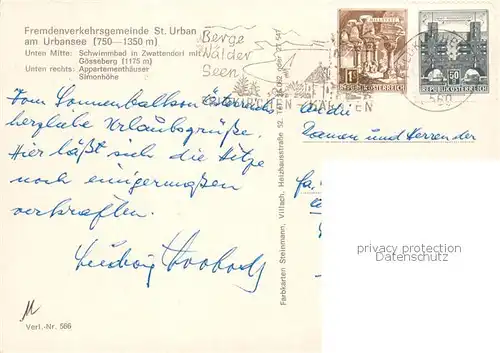 Fremdenverkehrsgemeinde St. Urban
am Urbansee (750—1350 m)
Unten Mitte: Schwimmbad in Zwattendorf mit
Gösseberg (1175 m)
Unten rechts: Appartementhäuser
Simonhöhe
Berge
Wälder
Seen
KÄRNTEN
REPUBLIK ÖSTERREICH
50
REPUBLIK ÖSTERREICH
560
Vom Sonnenbalkon Österreichs
herzliche Urlaubsgrüße.
Hier läßt sich die Hitze
noch einigermaßen
verkraften.
An die
Damen und Herren der
Fa.
Farbkarten Steinmann, Villach, Heizhausstraße 12
privacy protection
Datenschutz
Verl.-Nr. 566